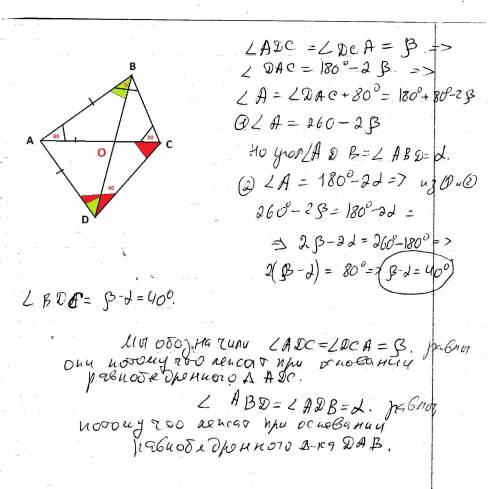 B
A
80
50
C
O
40
D
∠ADC = ∠DCA = β =>
∠DAC = 180° - 2β =>
∠A = ∠DAC + 80° = 180° + 80° - 2β
① ∠A = 260 - 2β
Но угол ∠ADB = ∠ABD = α.
② ∠A = 180° - 2α => из ① и ②
260° - 2β = 180° - 2α =
=> 2β - 2α = 260° - 180° =>
2(β - α) = 80° => β - α = 40°
∠BDC = β - α = 40°.
Мы обозначили ∠ADC = ∠DCA = β. равны
они потому что лежат при основании
равнобедренного Δ ADC.
∠ABD = ∠ADB = α. равны
потому что лежат при основании
равнобедренного Δ-ка DAB.